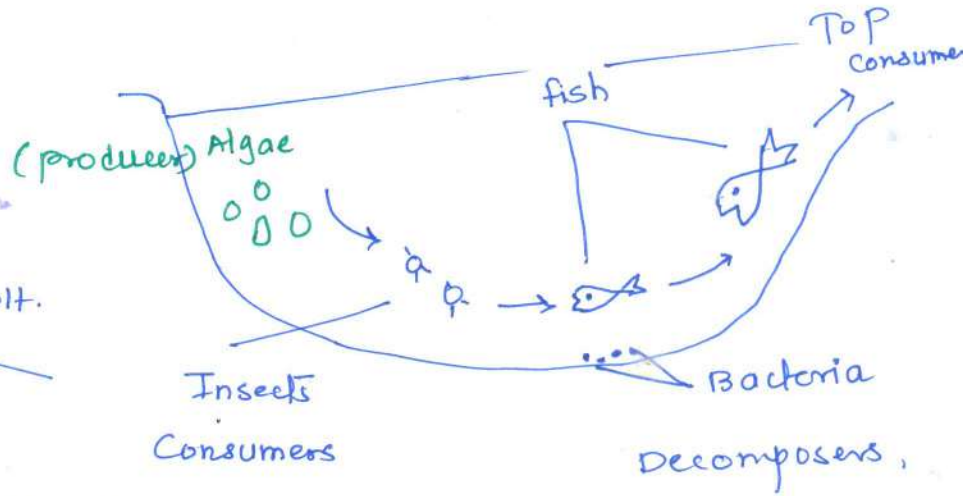 Top
Consume
fish
(producer) Algae
lt.
Insects
Consumers
Bacteria
Decomposers,